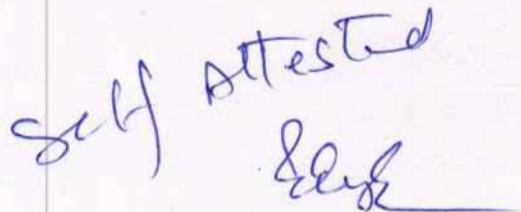 Self Attested